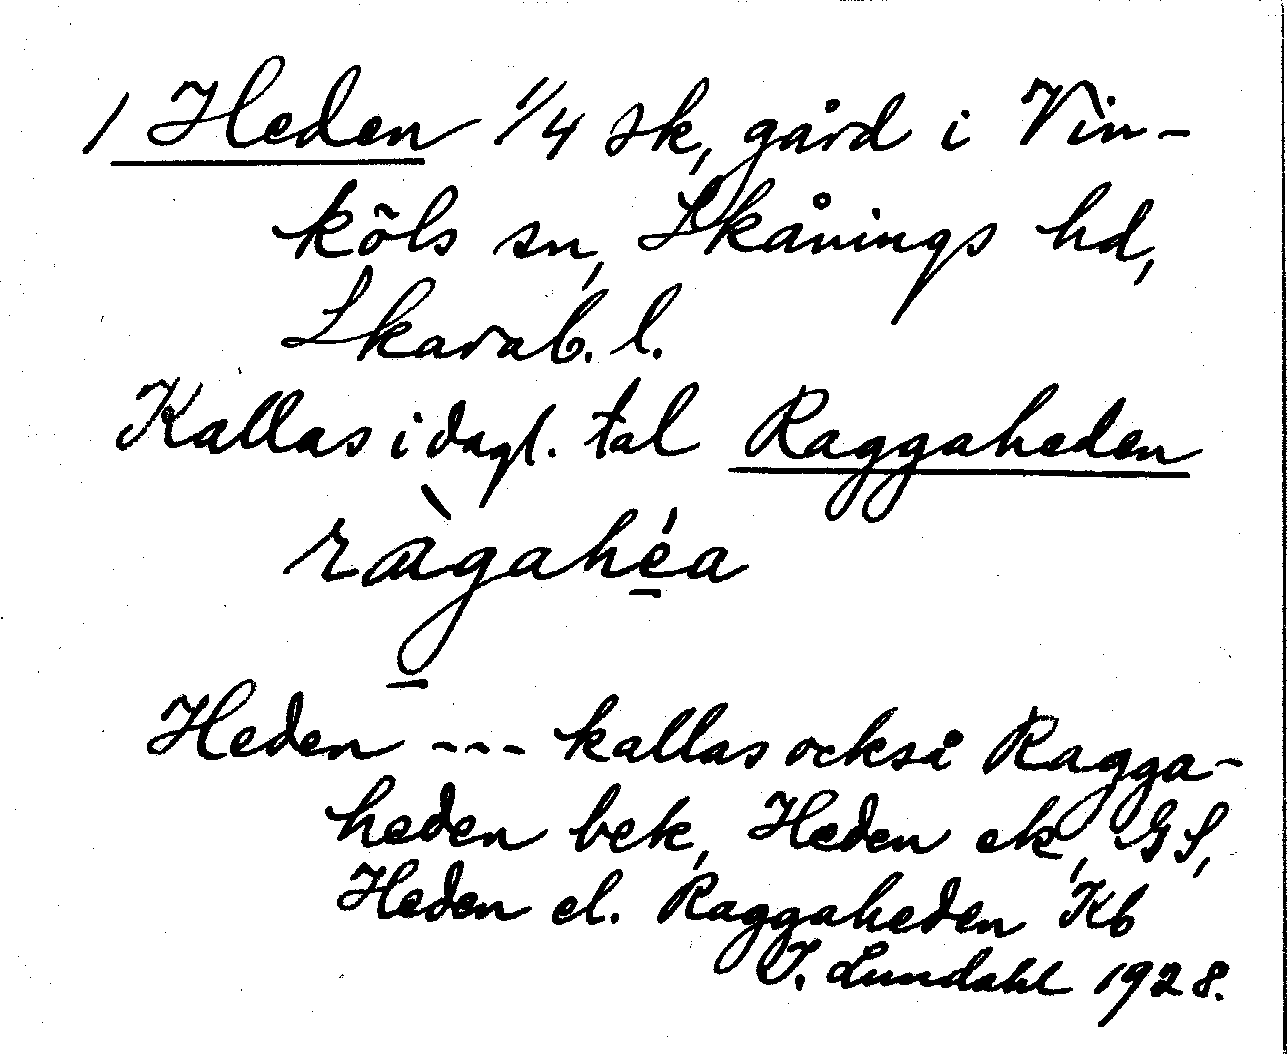 1 Heden 1/4 sk, gård i Vin-
köls sn, Skånings hd,
Skarab. l.
Kallas i dagl. tal Raggaheden
ràgahéa
Heden --- kallas också Ragga-
heden bek, Heden ek, GS,
Heden el. Raggaheden Kb
I. Lundahl 1928.